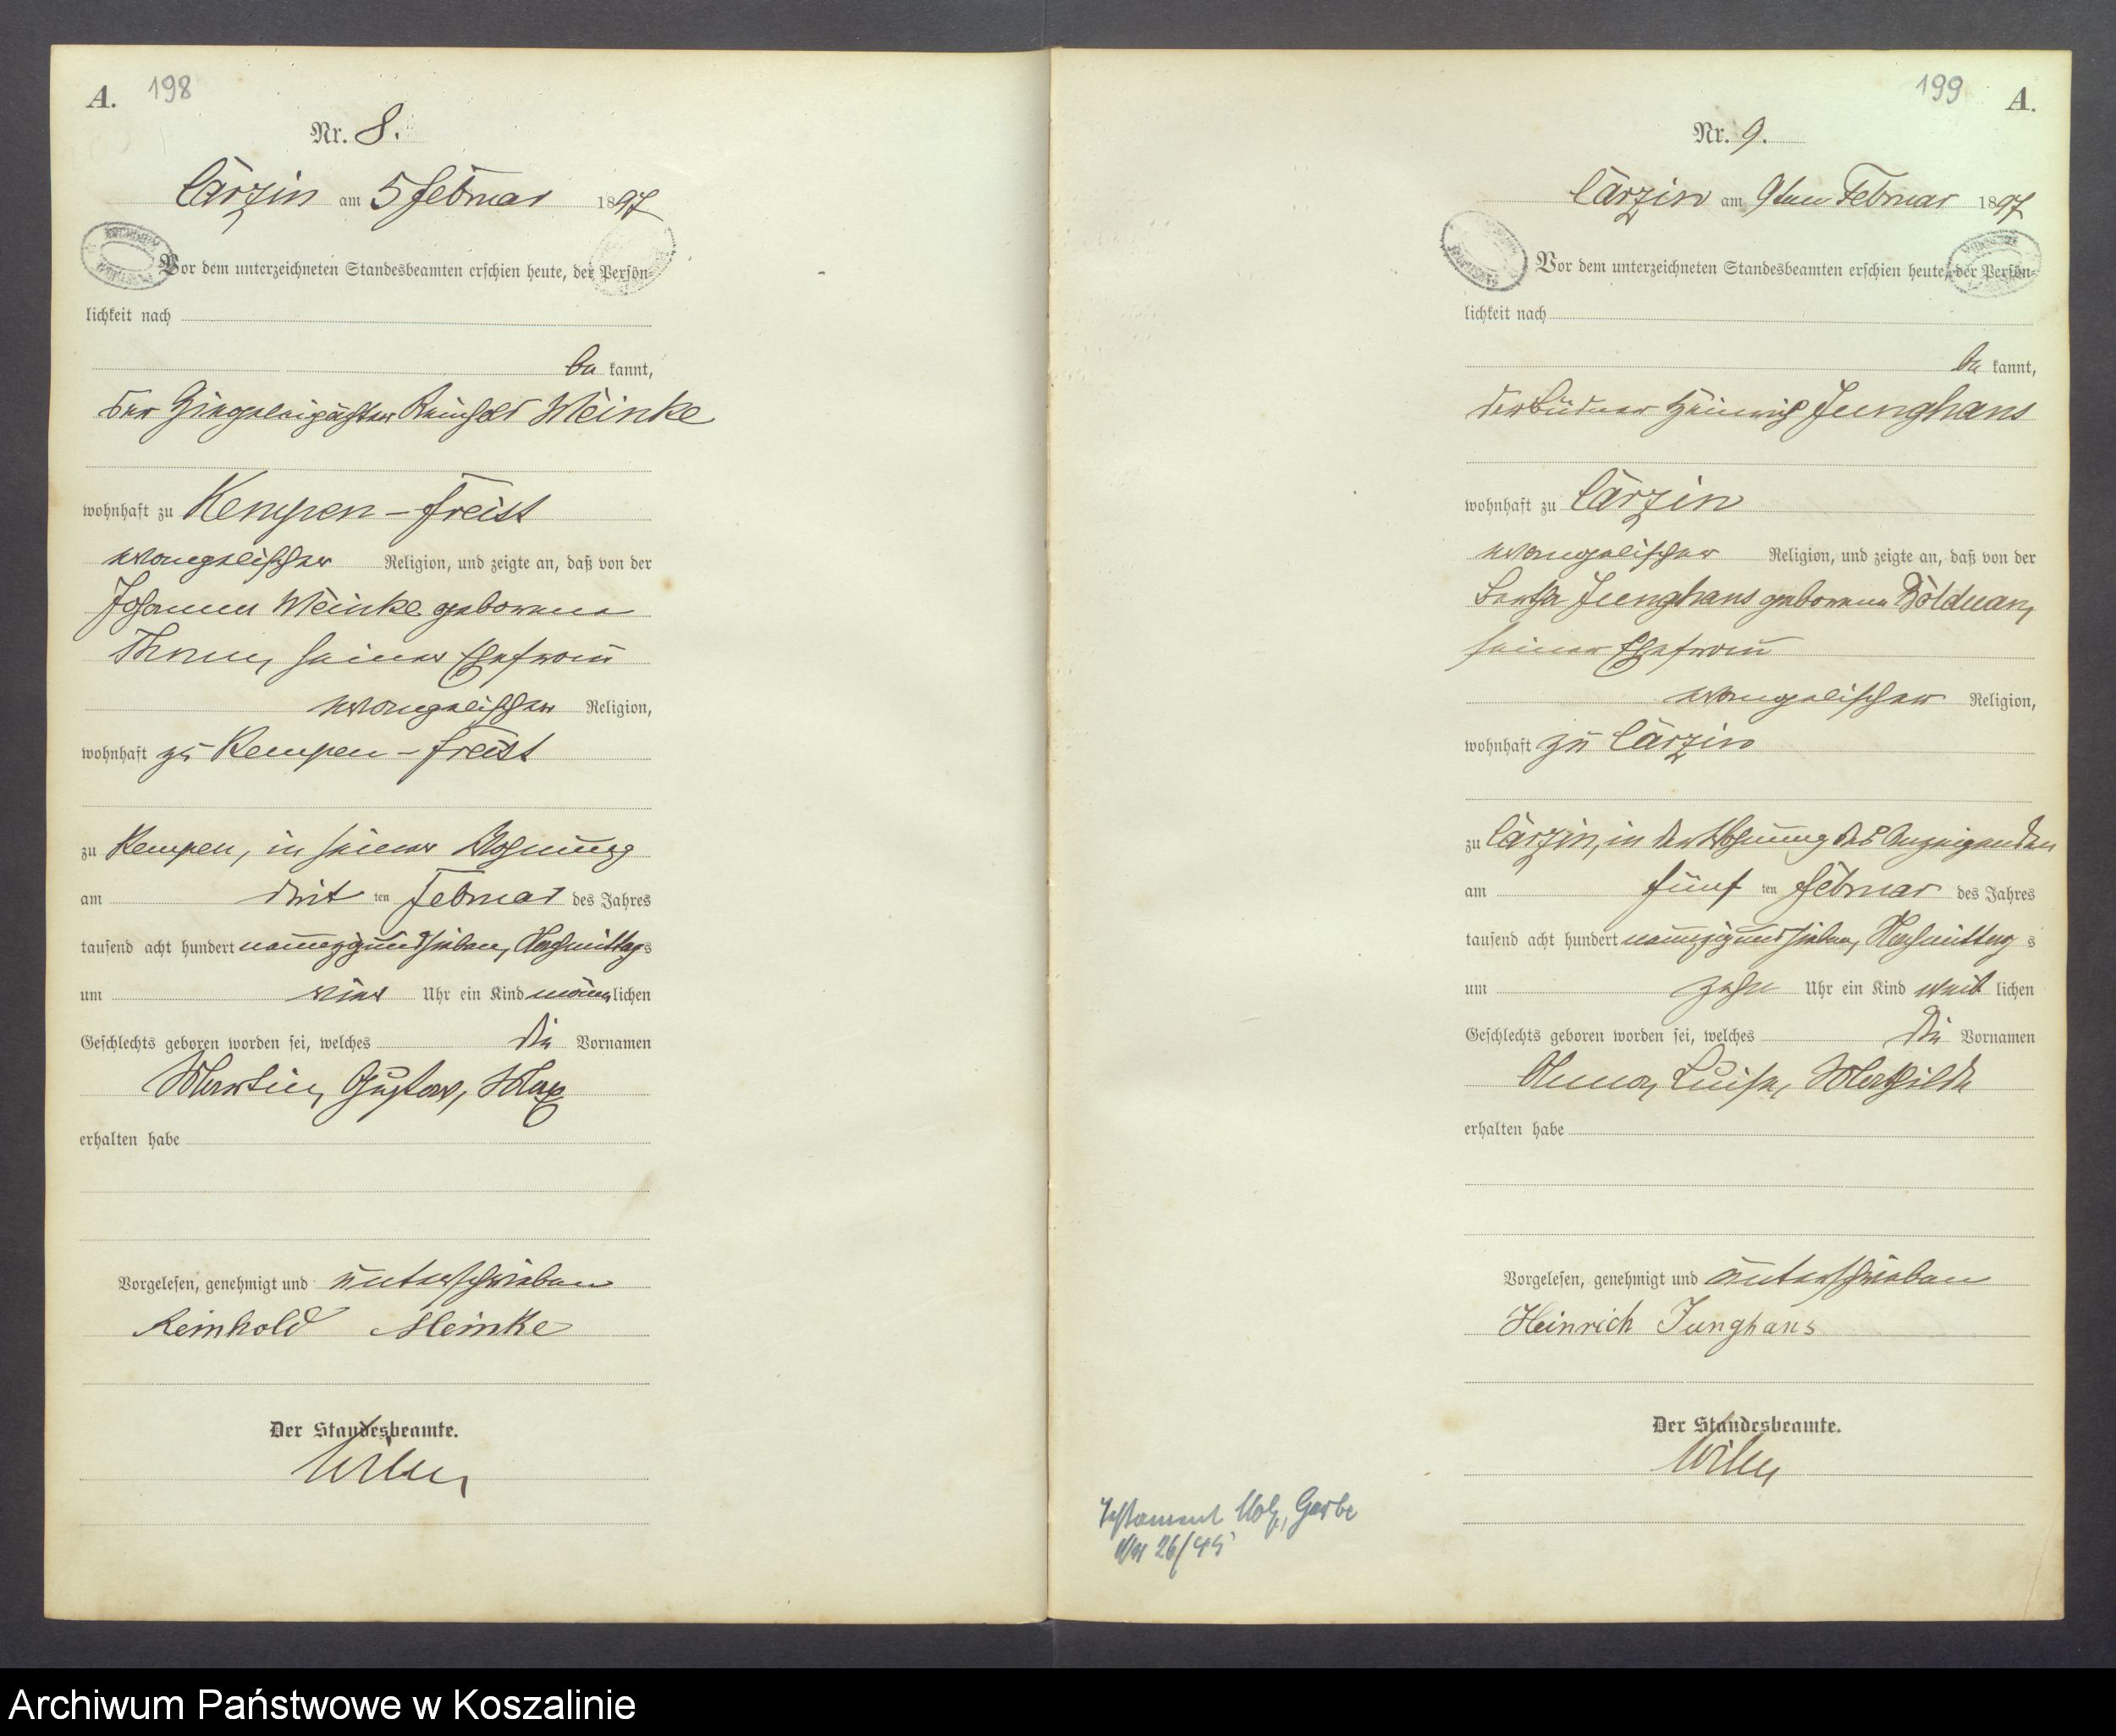 A. 198
Nr. 8.
Carzin am 5 Februar 1897
Vor dem unterzeichneten Standesbeamten erschien heute, der Persön-
lichkeit nach
be kannt,
der Ziegeleipächter Reinhold Meinke
wohnhaft zu Kempen-Freist
evangelischer Religion, und zeigte an, daß von der
Johanna Meinke geborene
seiner Ehefrau
evangelischer Religion,
wohnhaft zu Kempen-Freist
zu Kempen, in seiner Wohnung
am dritten Februar des Jahres
tausend acht hundert neunzig und sieben, Nachmittags
um vier Uhr ein Kind männlichen
Geschlechts geboren worden sei, welches die Vornamen
Martin, Gustav, Max
erhalten habe
Vorgelesen, genehmigt und unterschrieben
Reinhold Meinke
Der Standesbeamte.
199 A.
Nr. 9.
Carzin am 9ten Februar 1897
Vor dem unterzeichneten Standesbeamten erschien heute, der Persön-
lichkeit nach
be kannt,
der Büdner Heinrich Junghans
wohnhaft zu Carzin
evangelischer Religion, und zeigte an, daß von der
Bertha Junghans geborene Bolduan,
seiner Ehefrau
evangelischer Religion,
wohnhaft zu Carzin
zu Carzin, in der Wohnung des Anzeigenden
am fünften Februar des Jahres
tausend acht hundert neunzig und sieben, Nachmittag s
um zehn Uhr ein Kind weib lichen
Geschlechts geboren worden sei, welches die Vornamen
Anna, Luise, Mathilde
erhalten habe
Vorgelesen, genehmigt und unterschrieben
Heinrich Junghans
Der Standesbeamte.
Testament Garbe
26/45
Archiwum Państwowe w Koszalinie